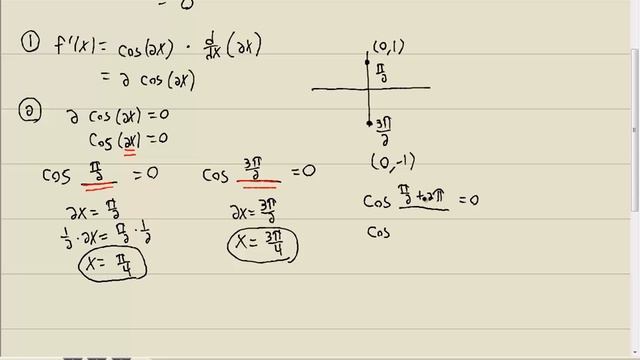 = 0
① f'(x) = cos(2x) · d/dx (2x)
= 2 cos(2x)
(0,1)
π/2
3π/2
(0,-1)
② 2 cos(2x) = 0
cos(2x) = 0
cos π/2 = 0
2x = π/2
1/2 · 2x = π/2 · 1/2
x = π/4
cos 3π/2 = 0
2x = 3π/2
x = 3π/4
cos π/2 + 2π = 0
cos